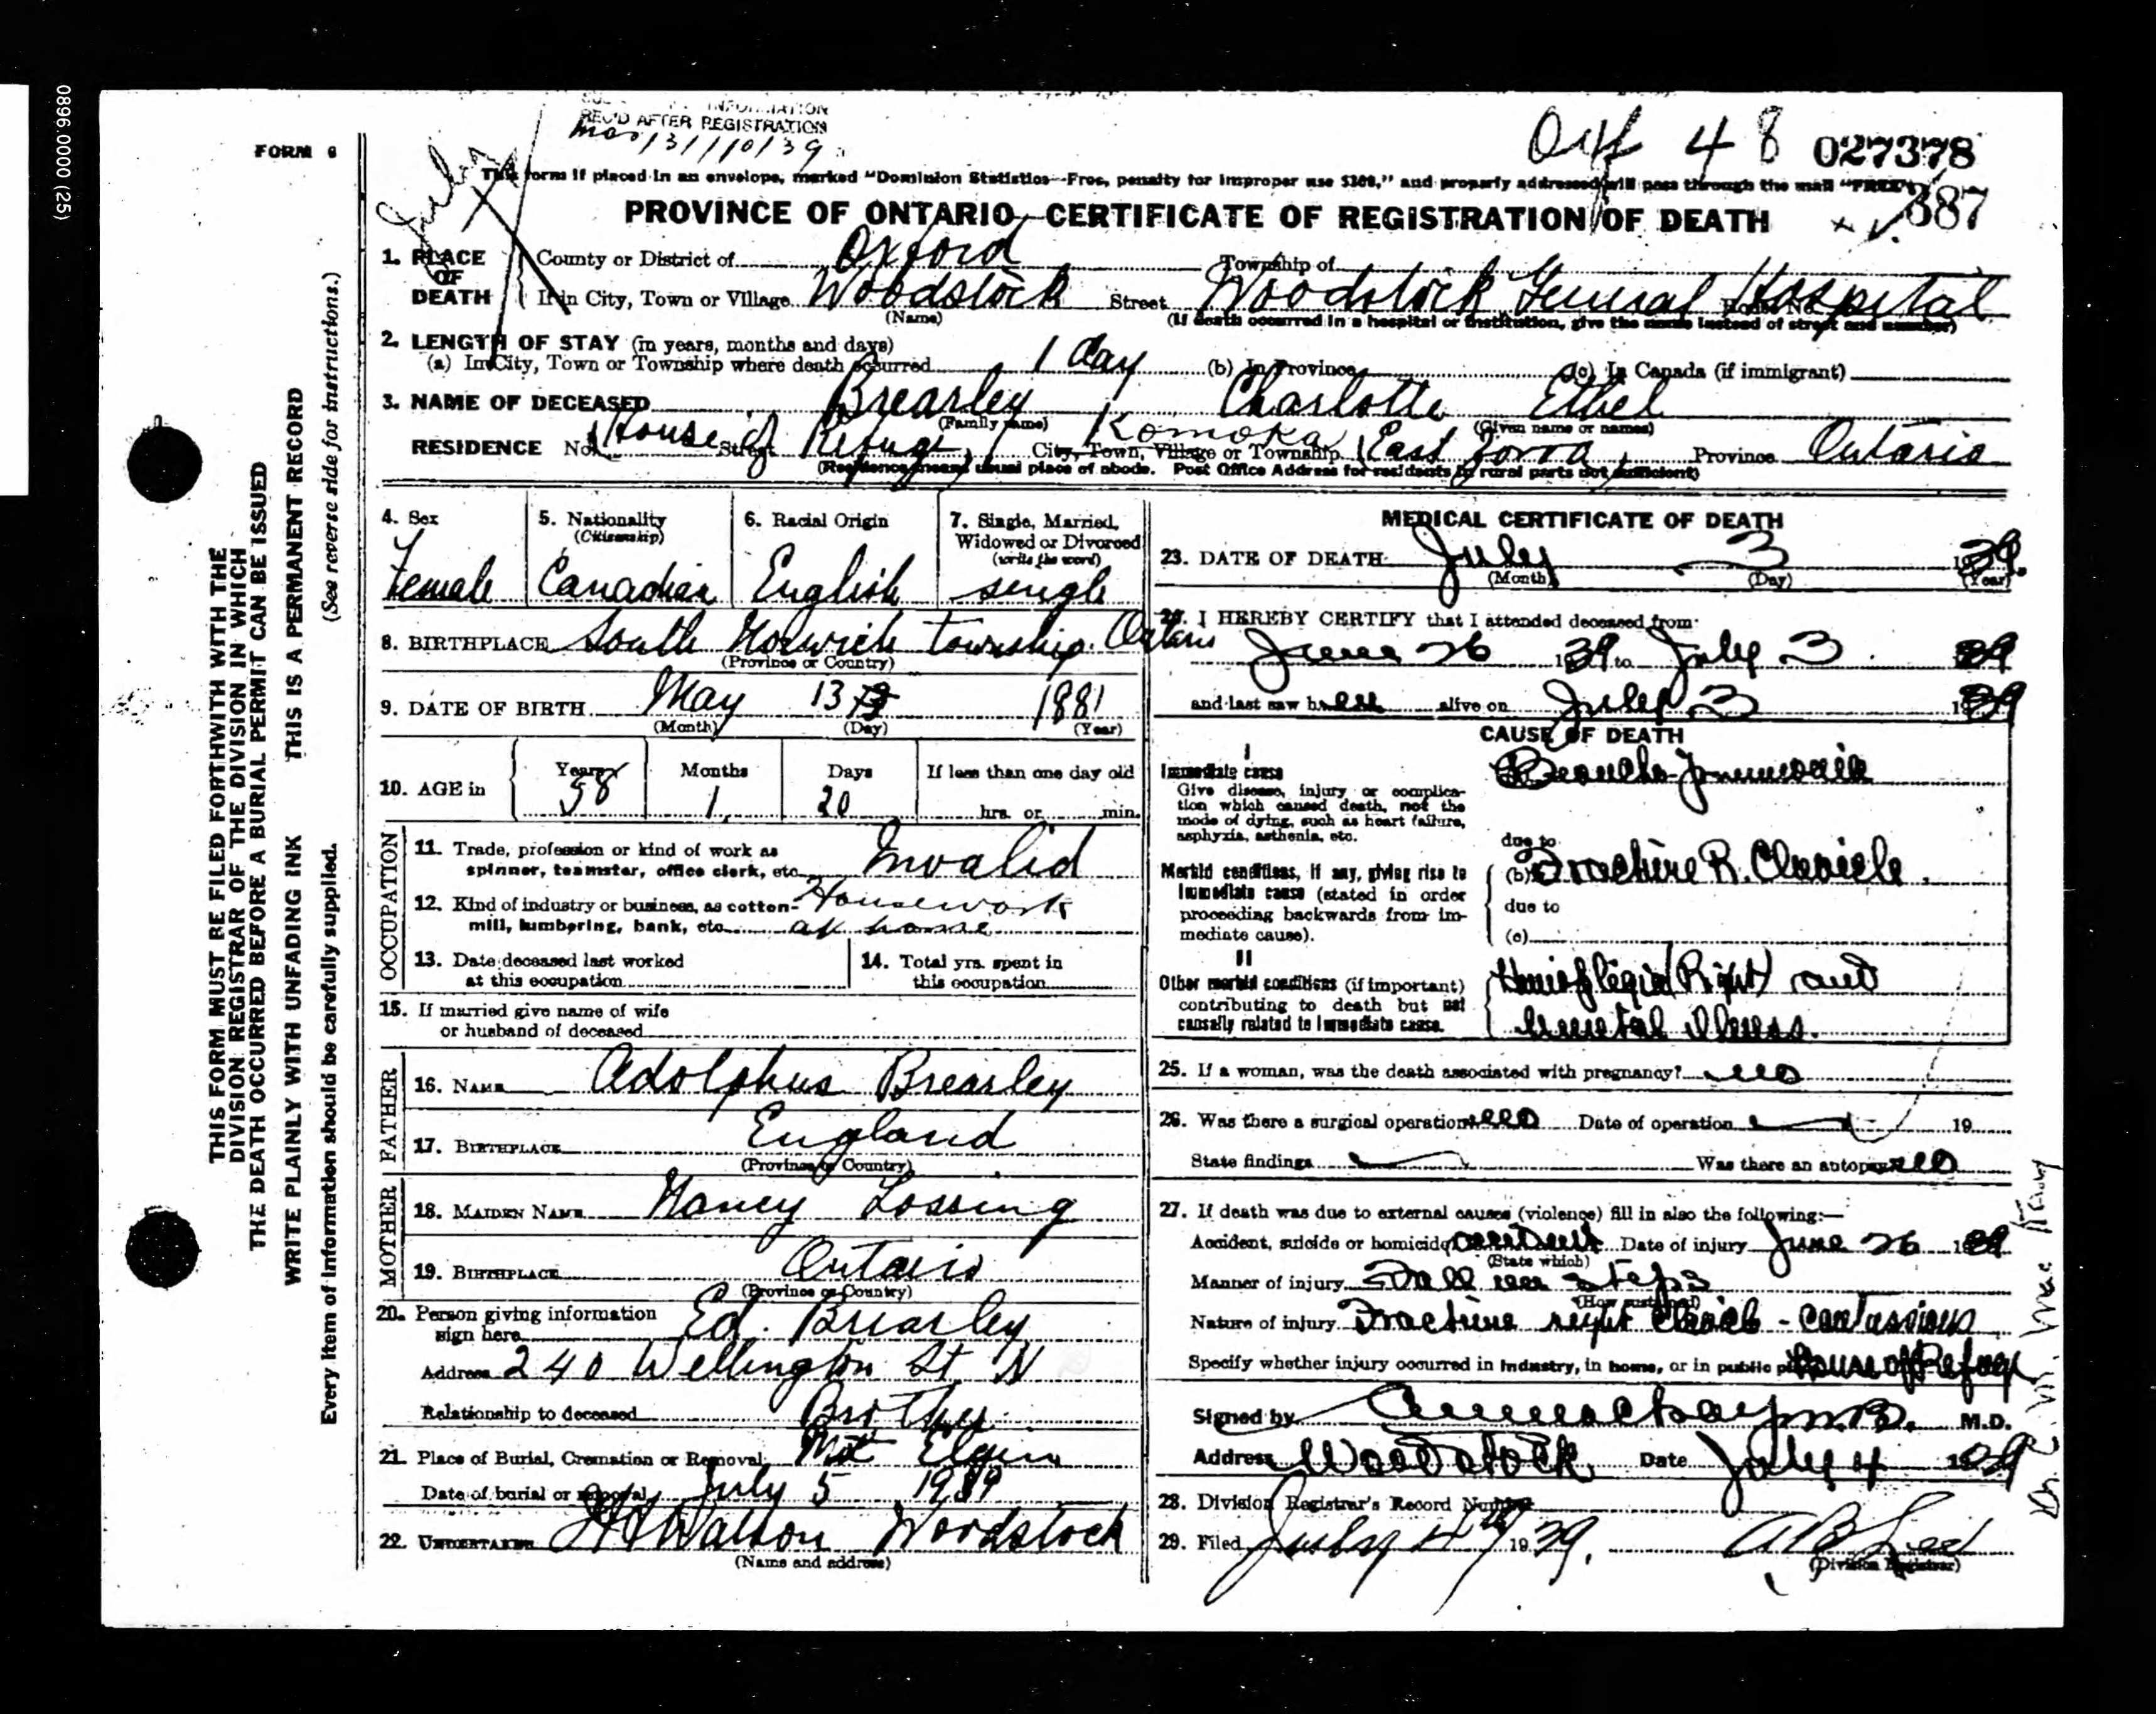 0896.0000 (25)
FORM 6
INFORMATION
REC'D AFTER REGISTRATION
July
Oxf 48 027378
This form if placed in an envelope, marked "Dominion Statistics—Free, penalty for improper use $300," and properly addressed will pass through the mail "FREE"
PROVINCE OF ONTARIO—CERTIFICATE OF REGISTRATION OF DEATH
387
1. PLACE OF DEATH
County or District of Oxford Township of
If in City, Town or Village Woodstock Street Woodstock General Hospital House No.
(Name) (If death occurred in a hospital or institution, give the name instead of street and number)
2. LENGTH OF STAY (in years, months and days)
(a) In City, Town or Township where death occurred 1 day (b) In Province (c) In Canada (if immigrant)
3. NAME OF DECEASED Brearley Charlotte Ethel
(Family name) (Given name or names)
RESIDENCE No. House of Refuge, Street Komoka City, Town, Village or Township East Zorra, Province Ontario
(Residence means usual place of abode. Post Office Address for residents in rural parts not sufficient)
4. Sex
Female
5. Nationality
(Citizenship)
Canadian
6. Racial Origin
English
7. Single, Married, Widowed or Divorced
(write the word)
single
8. BIRTHPLACE South Norwich Township. Ontario
(Province or Country)
9. DATE OF BIRTH May 13 1881
(Month) (Day) (Year)
10. AGE in
Years Months Days If less than one day old
58 1 20 hrs. or min.
OCCUPATION
11. Trade, profession or kind of work as
spinner, teamster, office clerk, etc. Invalid
12. Kind of industry or business, as cotton- Housework
mill, lumbering, bank, etc. at home
13. Date deceased last worked
at this occupation
14. Total yrs. spent in
this occupation
15. If married give name of wife
or husband of deceased
FATHER
16. NAME Adolphus Brearley
17. BIRTHPLACE England
(Province or Country)
MOTHER
18. MAIDEN NAME Nancy Lossing
19. BIRTHPLACE Ontario
(Province or Country)
20. Person giving information
sign here Ed. Brearley
Address 240 Wellington St N
Relationship to deceased Brother
21. Place of Burial, Cremation or Removal Mt Elgin
Date of burial or removal July 5 1939
22. UNDERTAKER Watson Woodstock
(Name and address)
MEDICAL CERTIFICATE OF DEATH
23. DATE OF DEATH July 3 1939.
(Month) (Day) (Year)
24. I HEREBY CERTIFY that I attended deceased from:
June 26 1939 to July 3 1939
and last saw her alive on July 3 1939
CAUSE OF DEATH
I
Immediate cause
Give disease, injury or complica-
tion which caused death, not the
mode of dying, such as heart failure,
asphyxia, asthenia, etc.
Broncho-pneumonia
due to
Morbid conditions, if any, giving rise to
immediate cause (stated in order
proceeding backwards from im-
mediate cause).
(b) Fracture R. Clavicle.
due to
(c)
II
Other morbid conditions (if important)
contributing to death but not
causally related to immediate cause.
Hemiplegia (Right) and
mental illness.
25. If a woman, was the death associated with pregnancy? no
26. Was there a surgical operation no Date of operation 19
State findings Was there an autopsy no
27. If death was due to external causes (violence) fill in also the following:—
Accident, suicide or homicide accident Date of injury June 26 1939
(State which)
Manner of injury Fall on steps
(How sustained)
Nature of injury Fracture right clavicle - contusions
Specify whether injury occurred in industry, in home, or in public place House of Refuge
Signed by M.B. M.D.
Address Woodstock Date July 4 1939
28. Division Registrar's Record Number
29. Filed July 4th 1939.
(Division Registrar)
THIS FORM MUST BE FILED FORTHWITH WITH THE
DIVISION REGISTRAR OF THE DIVISION IN WHICH
THE DEATH OCCURRED BEFORE A BURIAL PERMIT CAN BE ISSUED
WRITE PLAINLY WITH UNFADING INK THIS IS A PERMANENT RECORD
Every item of information should be carefully supplied. (See reverse side for instructions.)